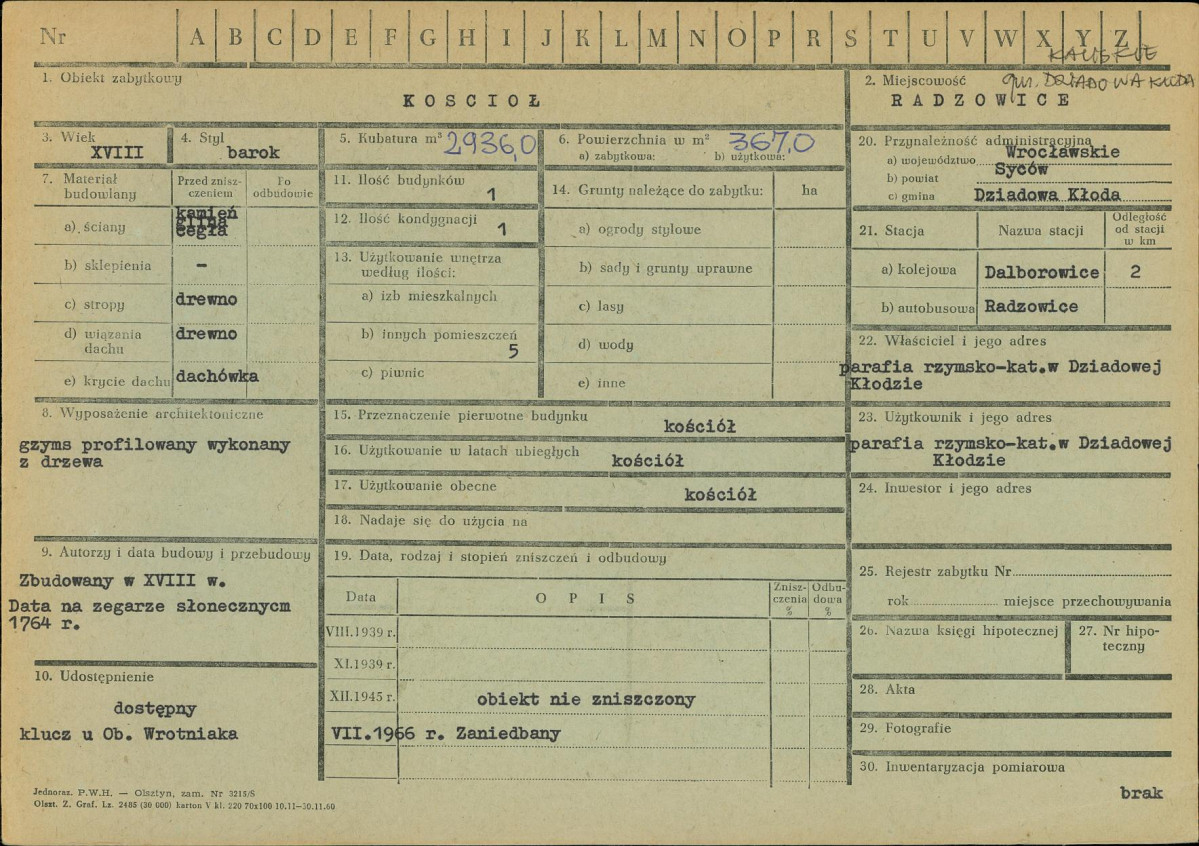 Nr A B C D E F G H I J K L M N O P R S T U V W X Y Z
KALISKIE
gm. DZIADOWA KŁODA
1. Obiekt zabytkowy
KOSCIOŁ
2. Miejscowość
RADZOWICE
3. Wiek
XVIII
4. Styl
barok
5. Kubatura m³ 2936,0
6. Powierzchnia w m² 367,0
a) zabytkowa: b) użytkowa:
7. Materiał budowlany
Przed zniszczeniem
Po odbudowie
a) ściany
kamień
glina
cegła
b) sklepienia –
c) stropy drewno
d) wiązania dachu drewno
e) krycie dachu dachówka
8. Wyposażenie architektoniczne
gzyms profilowany wykonany
z drzewa
9. Autorzy i data budowy i przebudowy
Zbudowany w XVIII w.
Data na zegarze słonecznycm
1764 r.
10. Udostępnienie
dostępny
klucz u Ob. Wrotniaka
11. Ilość budynków
1
12. Ilość kondygnacji
1
13. Użytkowanie wnętrza
według ilości:
a) izb mieszkalnych
b) innych pomieszczeń
5
c) piwnic
14. Grunty należące do zabytku: ha
a) ogrody stylowe
b) sady i grunty uprawne
c) lasy
d) wody
e) inne
15. Przeznaczenie pierwotne budynku
kościół
16. Użytkowanie w latach ubiegłych
kościół
17. Użytkowanie obecne
kościół
18. Nadaje się do użycia na
19. Data, rodzaj i stopień zniszczeń i odbudowy
Data OPIS Zniszczenia % Odbudowa %
VIII.1939 r.
XI.1939 r.
XII.1945 r. obiekt nie zniszczony
VII.1966 r. Zaniedbany
20. Przynależność administracyjna
a) województwo Wrocławskie
b) powiat Syców
c) gmina Dziadowa Kłoda
21. Stacja Nazwa stacji Odległość od stacji w km
a) kolejowa Dalborowice 2
b) autobusowa Radzowice
22. Właściciel i jego adres
parafia rzymsko-kat.w Dziadowej
Kłodzie
23. Użytkownik i jego adres
parafia rzymsko-kat.w Dziadowej
Kłodzie
24. Inwestor i jego adres
25. Rejestr zabytku Nr
rok miejsce przechowywania
26. Nazwa księgi hipotecznej
27. Nr hipoteczny
28. Akta
29. Fotografie
30. Inwentaryzacja pomiarowa
brak
Jednoraz. P.W.H. — Olsztyn, zam. Nr 3215/S
Olszt. Z. Graf. Lz. 2485 (30 000) karton V kl. 220 70x100 10.11—30.11.60